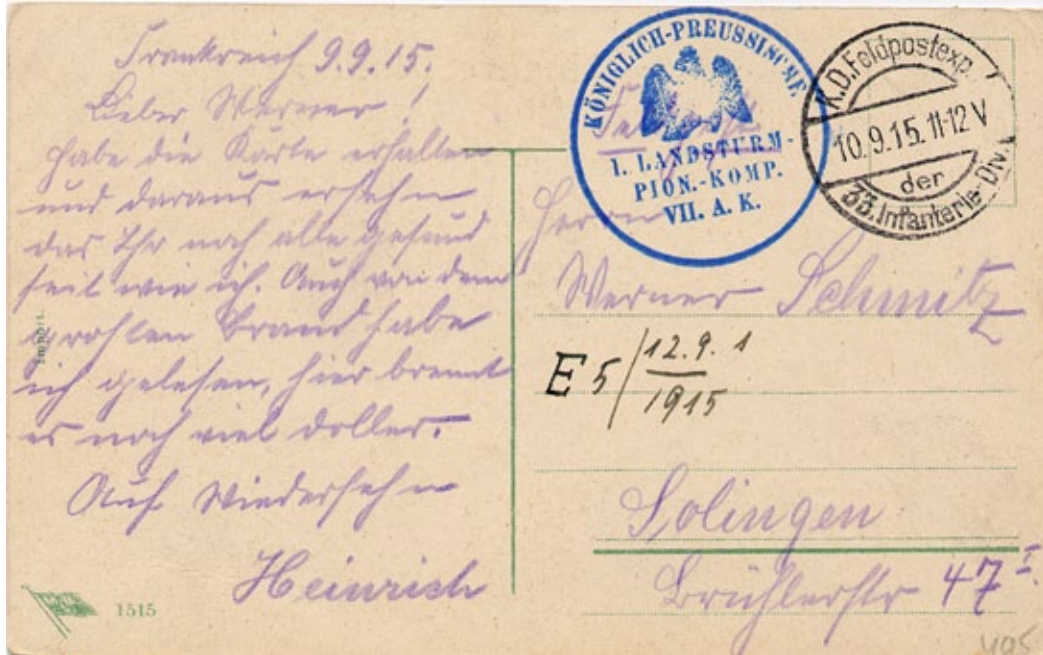 Frankreich 9.9.15.
Lieber Werner!
Habe die Karte erhalten
und daraus ersehn
das Ihr noch alle gesund
seit wie ich. Auch von dem
großen Brand habe
ich gelesen, hier brennt
es noch viel doller.
Auf Wiedersehn
Heinrich
1515
KÖNIGLICH-PREUSSISCHE
I. LANDSTURM-
PION.-KOMP.
VII. A. K.
K.D. Feldpostexp.
10.9.15. 11-12 V
der
33. Infanterie-Div.
Herrn
Werner Schmitz
E 5/12.9. 1
1915
Solingen
Brühlerstr 47 I.
495